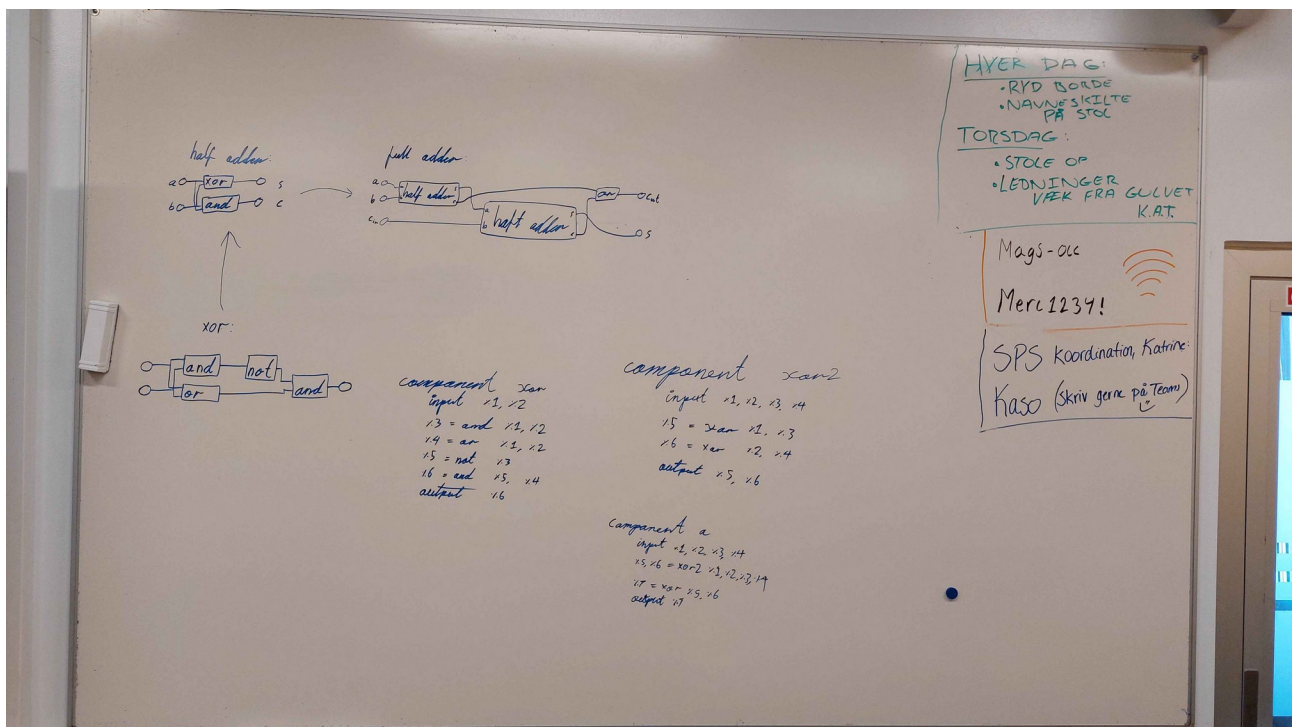 half adder:
a xor s
b and c
full adder:
a half adder
b
or Cout
a
Cin b half adder s
c
s
xor:
and not
or and
component xor
input %1, %2
%3 = and %1, %2
%4 = or %1, %2
%5 = not %3
%6 = and %5, %4
output %6
component xor2
input %1, %2, %3, %4
%5 = xor %1, %3
%6 = xor %2, %4
output %5, %6
component a
input %1, %2, %3, %4
%5, %6 = xor2 %1, %2, %3, %4
%7 = xor %5, %6
output %7
HVER DAG:
• RYD BORDE
• NAVNESKILTE
PÅ STOL
TORSDAG:
• STOLE OP
• LEDNINGER
VÆK FRA GULVET
K.A.T.
Mags-olc
Merc1234!
SPS koordination, Katrine:
Kaso (skriv gerne på Teams)